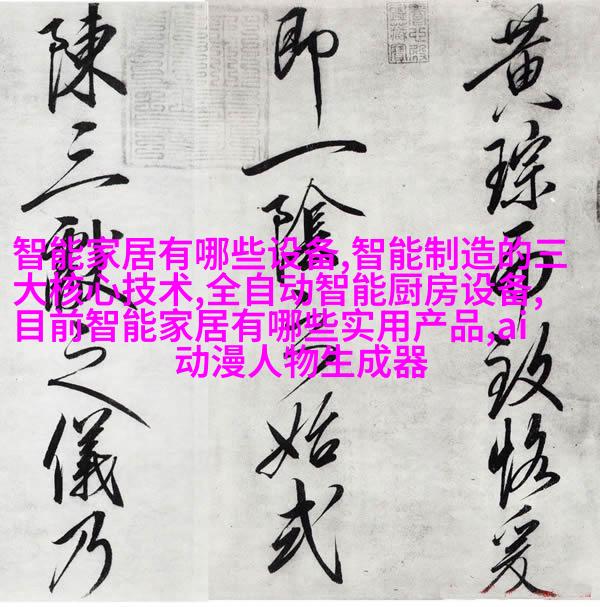 黄琮而致恪爰
即一陰始式
陳三獻之儀乃
智能家居有哪些设备,智能制造的三
大核心技术,全自动智能厨房设备,
目前智能家居有哪些实用产品,ai
动漫人物生成器